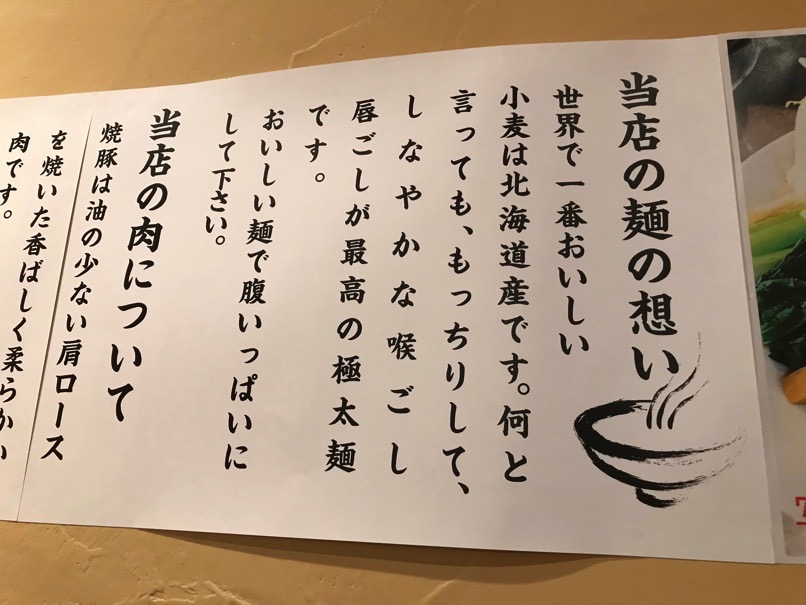 当店の麺の想い
世界で一番おいしい
小麦は北海道産です。何と
言っても、もっちりして、
しなやかな喉ごし
唇ごしが最高の極太麺
です。
おいしい麺で腹いっぱいに
して下さい。
当店の肉について
焼豚は油の少ない肩ロース
を焼いた香ばしく柔らかい
肉です。